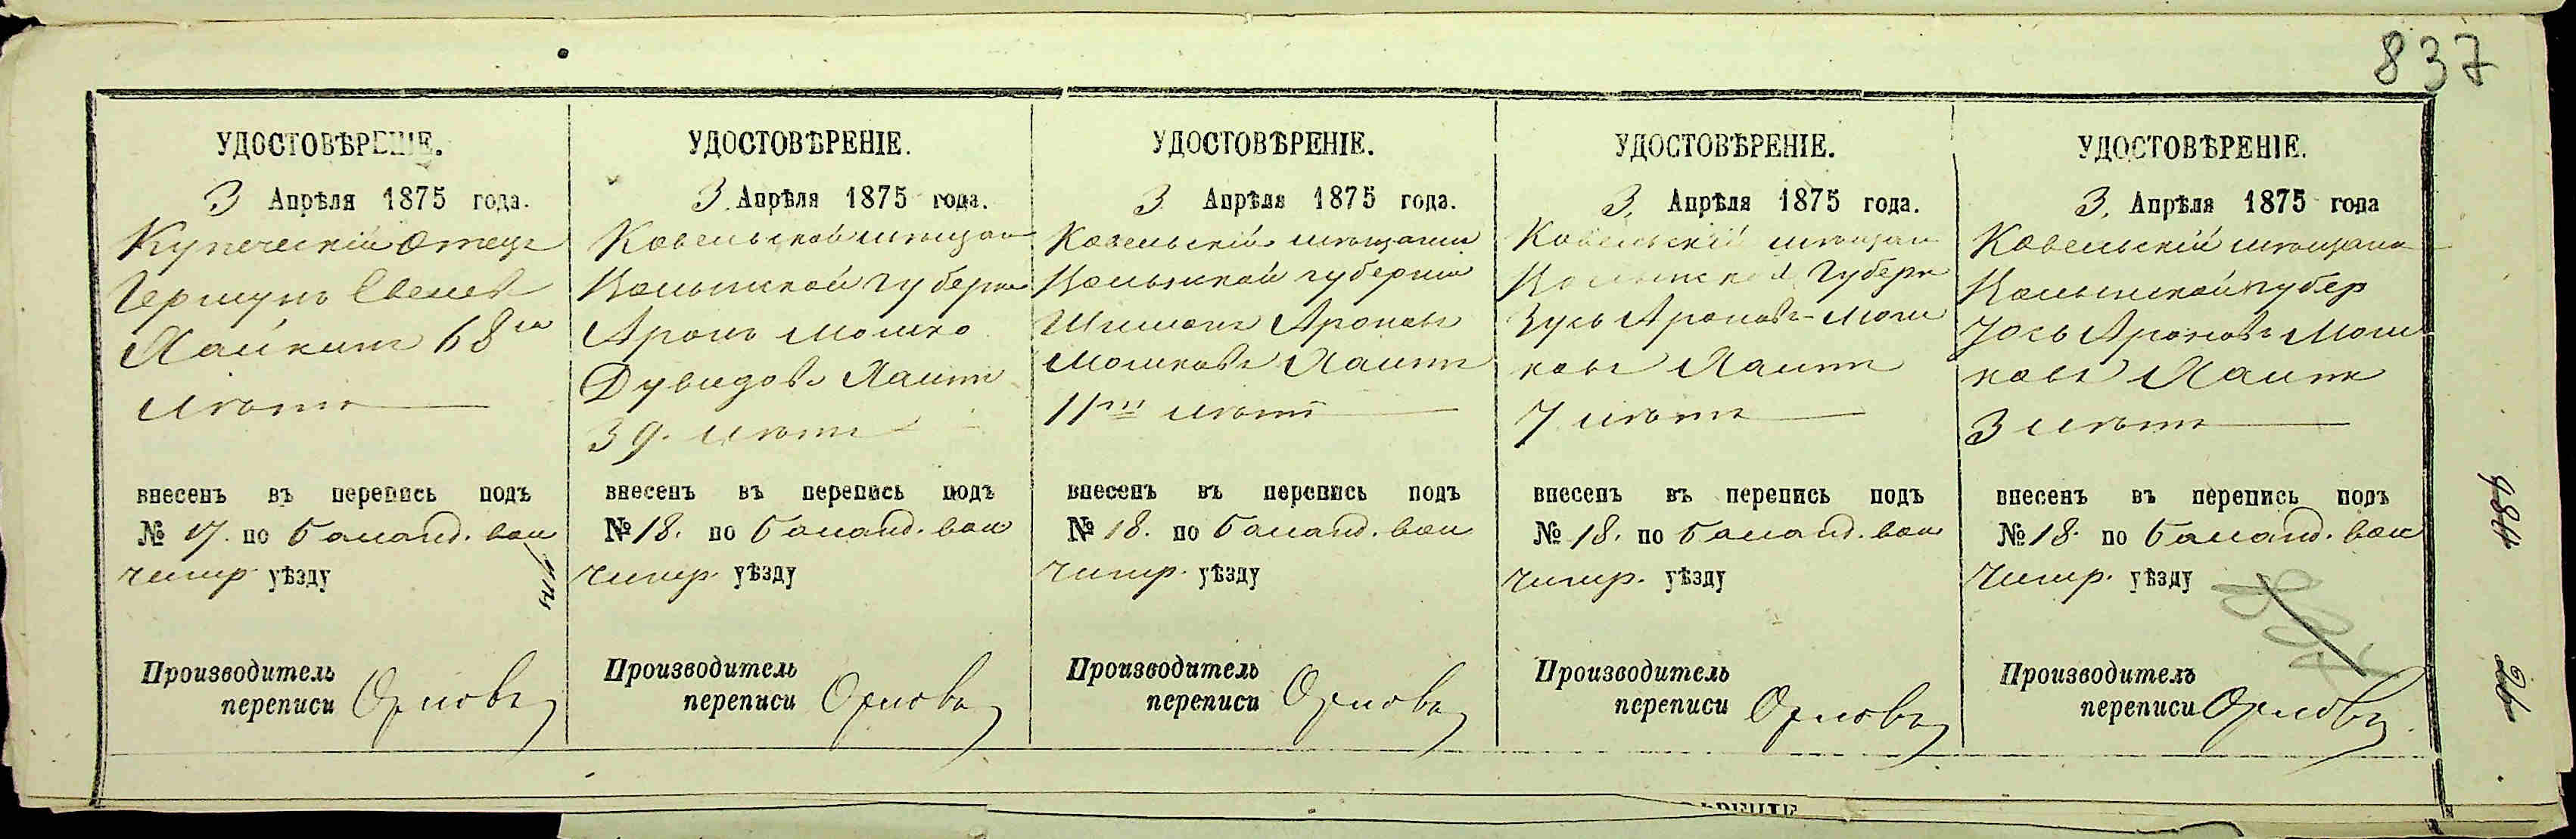 837
УДОСТОВѢРЕНІЕ.
3 Апрѣля 1875 года.
Купеческій Отецъ
Гершунъ Евелев
68ми
лѣтъ
внесенъ въ перепись подъ
№ 17. по Баланд. вол
Чигир уѣзду
Производитель
переписи Орловъ
УДОСТОВѢРЕНІЕ.
3 Апрѣля 1875 года.
Ковельской мѣщан
Волынской губерн
Аронъ Мошко
Дувидовъ Лангъ
39. лѣтъ
внесенъ въ перепись подъ
№ 18. по Баланд. вол
Чигир. уѣзду
Производитель
переписи Орловъ
УДОСТОВѢРЕНІЕ.
3 Апрѣля 1875 года.
Ковельскій мѣщанин
Волынской губерніи
Шимонъ Ароновъ
Мошковъ Лангъ
11ти лѣтъ
внесенъ въ перепись подъ
№ 18. по Баланд. вол
Чигир. уѣзду
Производитель
переписи Орловъ
УДОСТОВѢРЕНІЕ.
3. Апрѣля 1875 года.
Ковельскій мѣщан
Волынской Губерн
Зусь Ароновъ-Мош
ковъ Лангъ
7 лѣтъ
внесенъ въ перепись подъ
№ 18. по Баланд. вол
Чигир. уѣзду
Производитель
переписи Орловъ
УДОСТОВѢРЕНІЕ.
3. Апрѣля 1875 года
Ковельскій мѣщанин
Волынской губер
Юсь Ароновъ Мош
ковъ Лангъ
3 лѣтъ
внесенъ въ перепись подъ
№ 18. по Баланд. вол
Чигир. уѣзду
Производитель
переписи Орловъ